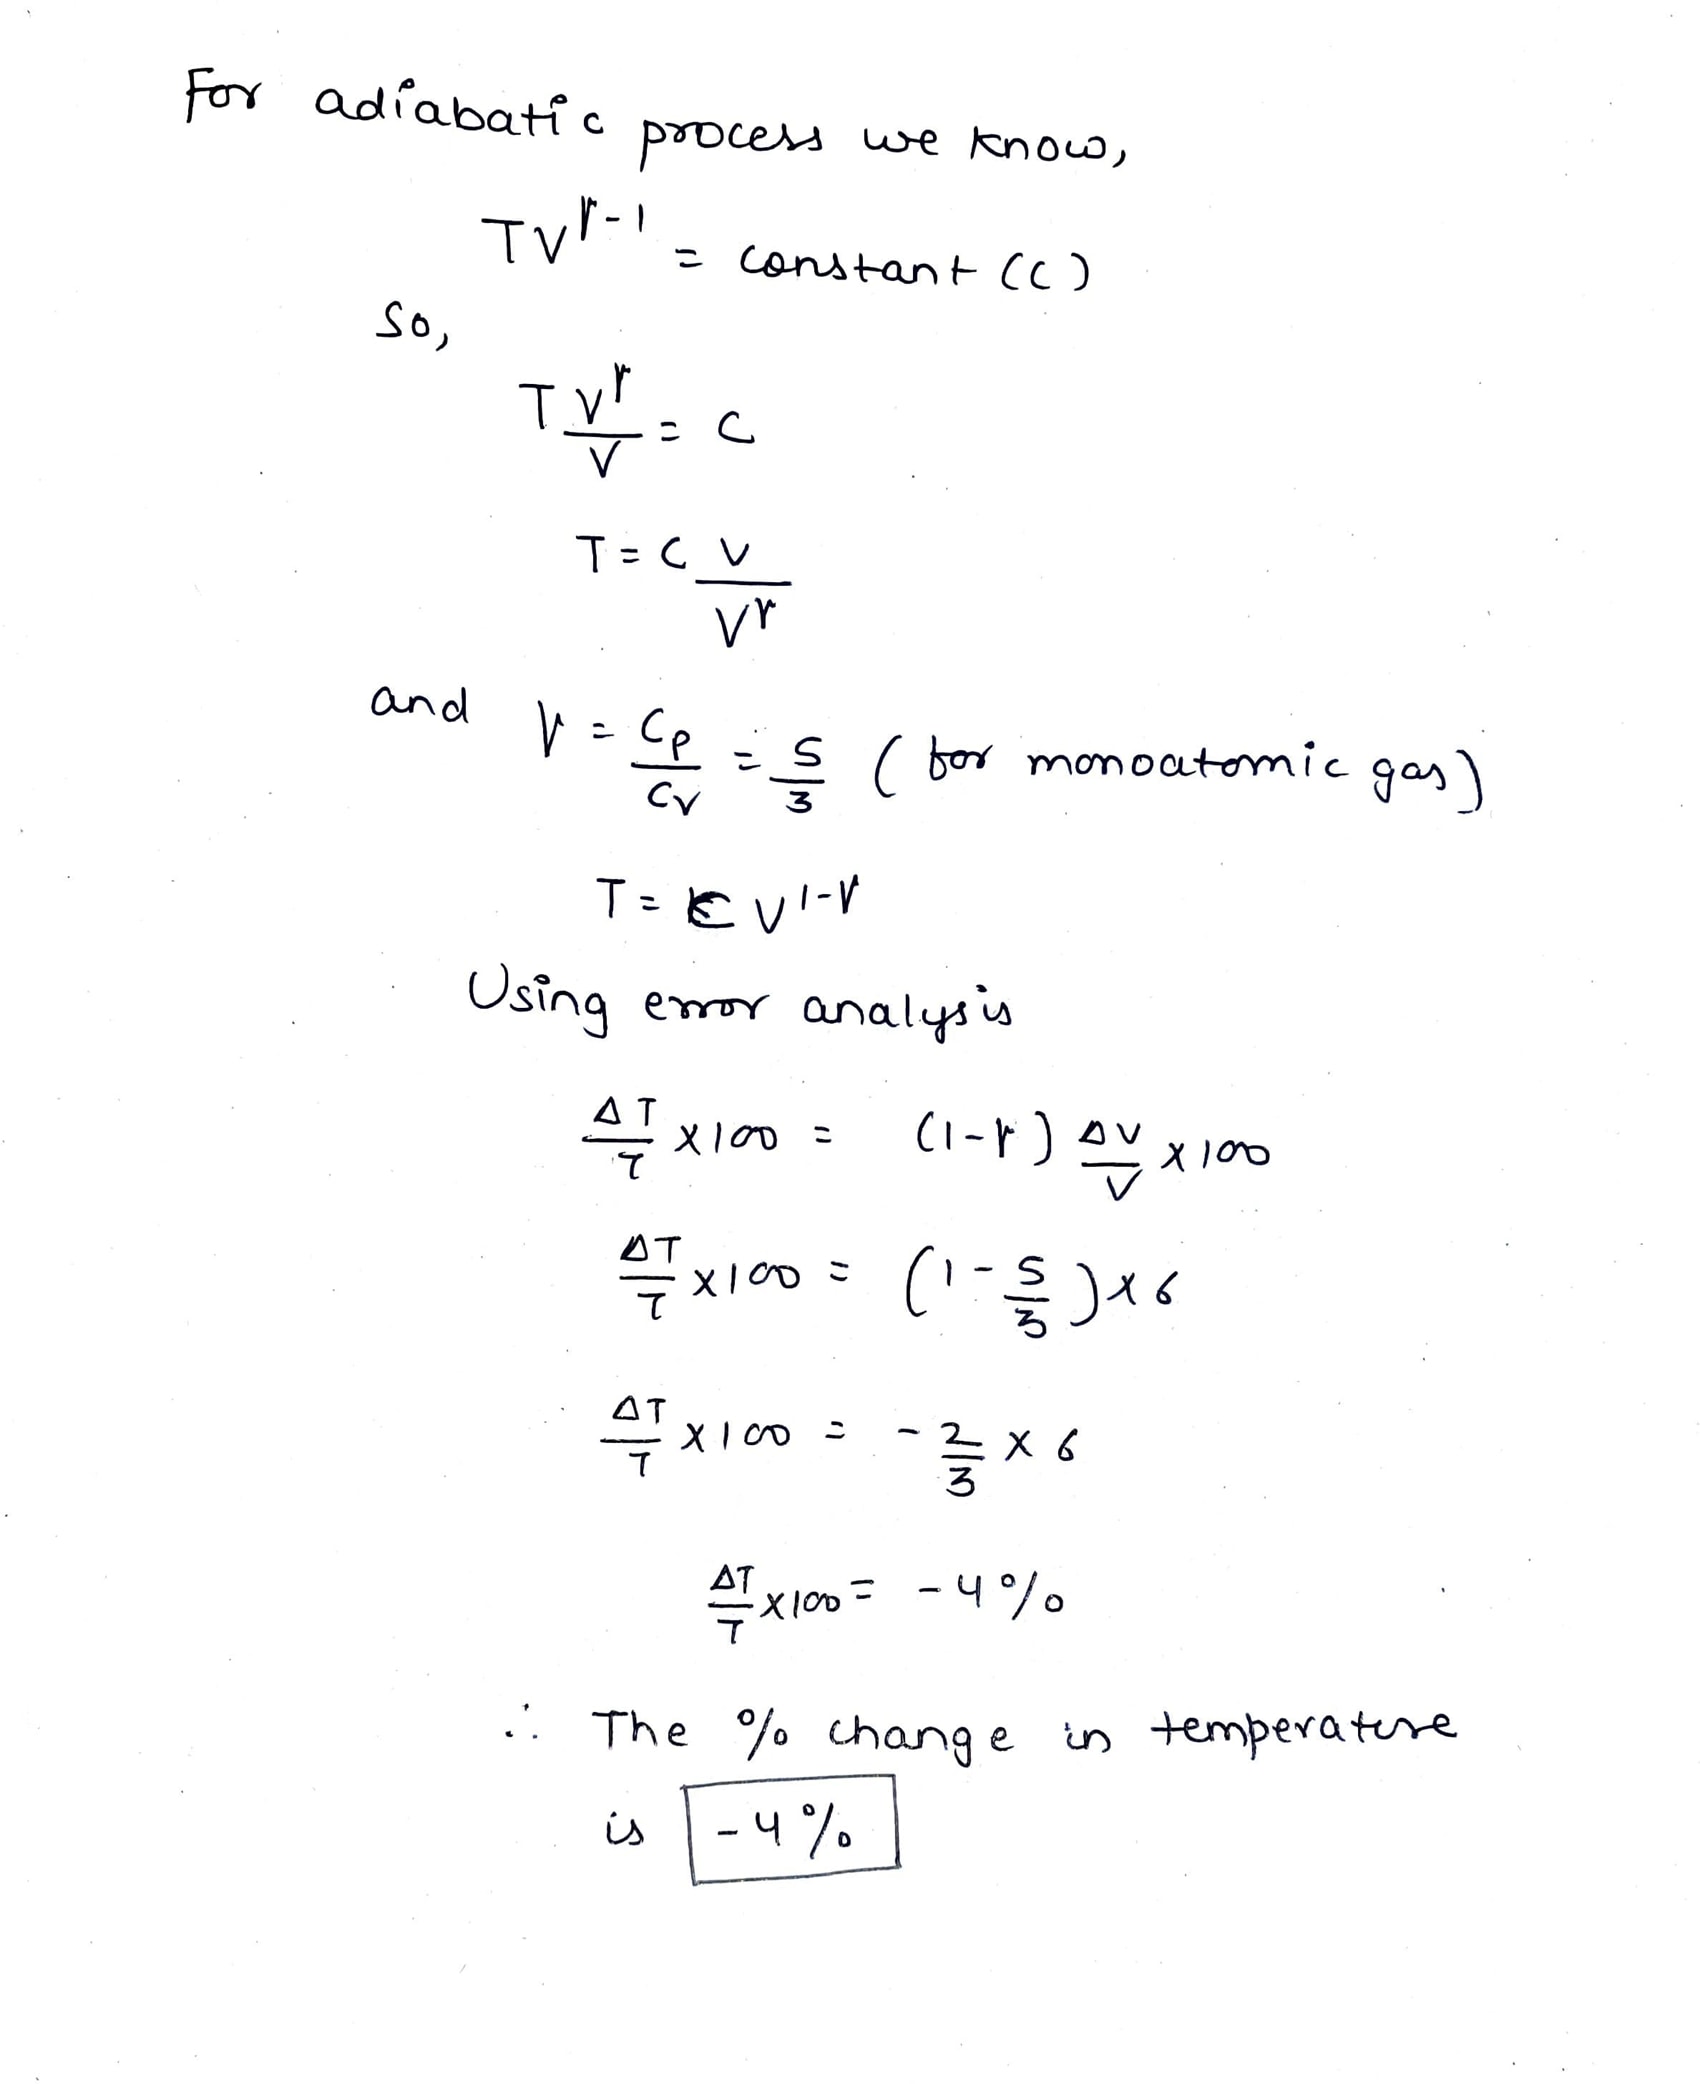 For adiabatic process we know,
TV^γ-1 = constant (C)
So,
T V^γ/V = C
T = C V/V^γ
and γ = Cp/Cv = 5/3 (for monoatomic gas)
T = C V^1-γ
Using error analysis
ΔT/T × 100 = (1-γ) ΔV/V × 100
ΔT/T × 100 = (1 - 5/3) × 6
ΔT/T × 100 = - 2/3 × 6
ΔT/T × 100 = -4%
∴ The % change in temperature
is -4%